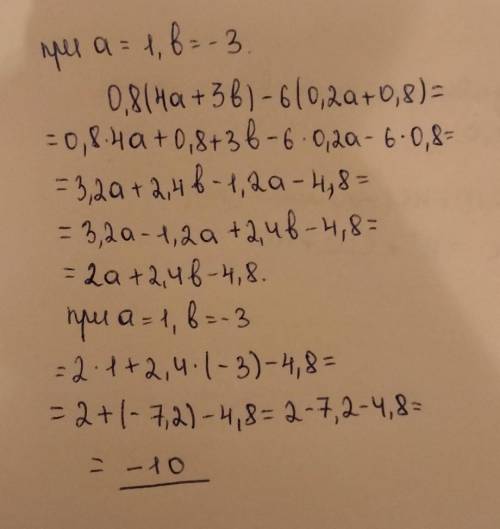 при a = 1, в = - 3.
0,8(4a + 3в) - 6(0,2a + 0,8) =
= 0,8·4a + 0,8+3в - 6·0,2a - 6·0,8=
= 3,2a + 2,4в - 1,2a - 4,8 =
= 3,2a - 1,2a + 2,4в - 4,8 =
= 2a + 2,4в - 4,8.
при a = 1, в = -3
= 2·1 + 2,4·(-3) - 4,8 =
= 2 + (-7,2) - 4,8 = 2 - 7,2 - 4,8 =
= -10